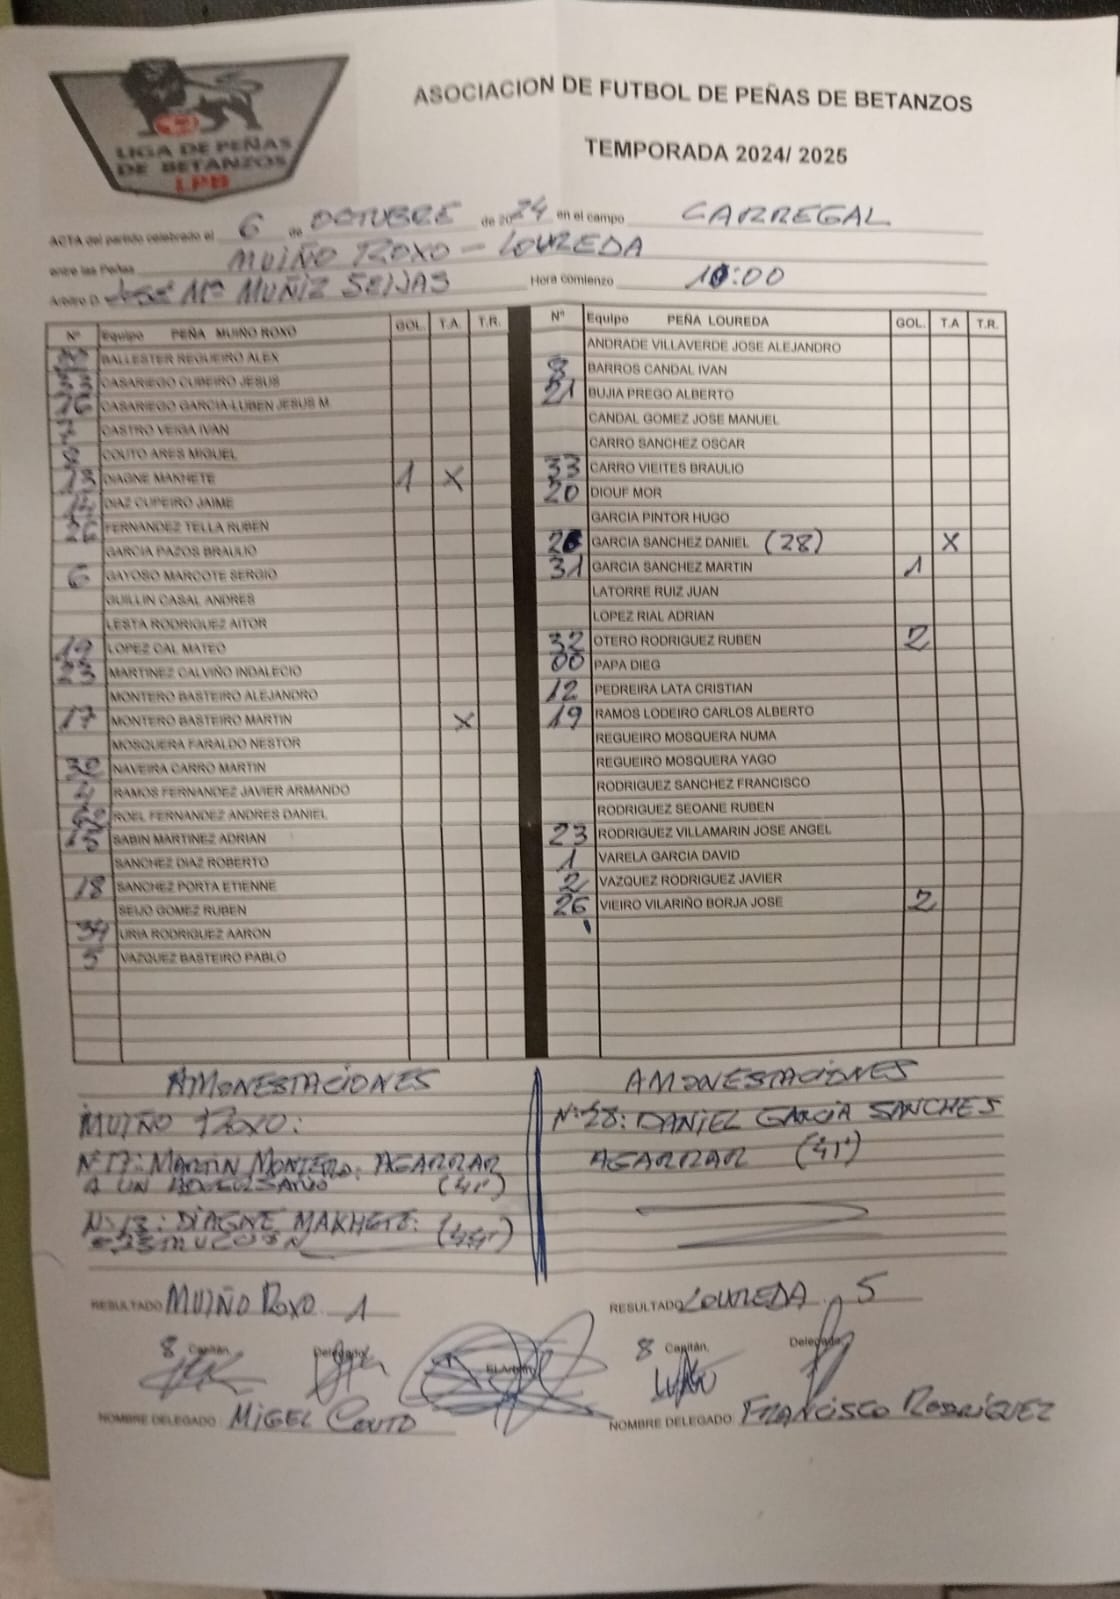 LIGA DE PEÑAS
DE BETANZOS
LPB
ASOCIACION DE FUTBOL DE PEÑAS DE BETANZOS
TEMPORADA 2024/ 2025
ACTA del partido celebrado el 6 de OCTUBRE de 2024 en el campo CARREGAL
entre las Peñas MUIÑO ROXO - LOUREDA
Arbitro D. José Mª MUÑIZ SEIJAS Hora comienzo 10:00
Nº Equipo PEÑA MUIÑO ROXO GOL. T.A. T.R.
BALLESTER REGUEIRO ALEX
33 CASARIEGO CUBEIRO JESUS
16 CASARIEGO GARCIA-LUBEN JESUS M
7 CASTRO VEIGA IVAN
8 COUTO ARES MIGUEL
13 DIAGNE MAKHETE 1 X
DIAZ CUPEIRO JAIME
26 FERNANDEZ TELLA RUBEN
GARCIA PAZOS BRAULIO
6 GAYOSO MARCOTE SERGIO
GUILLIN CASAL ANDRES
LESTA RODRIGUEZ AITOR
19 LOPEZ CAL MATEO
23 MARTINEZ CALVIÑO INDALECIO
MONTERO BASTEIRO ALEJANDRO
17 MONTERO BASTEIRO MARTIN X
MOSQUERA FARALDO NESTOR
30 NAVEIRA CARRO MARTIN
4 RAMOS FERNANDEZ JAVIER ARMANDO
ROEL FERNANDEZ ANDRES DANIEL
15 SABIN MARTINEZ ADRIAN
SANCHEZ DIAZ ROBERTO
18 SANCHEZ PORTA ETIENNE
SEIJO GOMEZ RUBEN
34 URIA RODRIGUEZ AARON
5 VAZQUEZ BASTEIRO PABLO
Nº Equipo PEÑA LOUREDA GOL. T.A T.R.
ANDRADE VILLAVERDE JOSE ALEJANDRO
8 BARROS CANDAL IVAN
21 BUJIA PREGO ALBERTO
CANDAL GOMEZ JOSE MANUEL
CARRO SANCHEZ OSCAR
33 CARRO VIEITES BRAULIO
20 DIOUF MOR
GARCIA PINTOR HUGO
GARCIA SANCHEZ DANIEL (28) X
31 GARCIA SANCHEZ MARTIN 1
LATORRE RUIZ JUAN
LOPEZ RIAL ADRIAN
32 OTERO RODRIGUEZ RUBEN 2
00 PAPA DIEG
12 PEDREIRA LATA CRISTIAN
19 RAMOS LODEIRO CARLOS ALBERTO
REGUEIRO MOSQUERA NUMA
REGUEIRO MOSQUERA YAGO
RODRIGUEZ SANCHEZ FRANCISCO
RODRIGUEZ SEOANE RUBEN
23 RODRIGUEZ VILLAMARIN JOSE ANGEL
1 VARELA GARCIA DAVID
2 VAZQUEZ RODRIGUEZ JAVIER
26 VIEIRO VILARIÑO BORJA JOSE 2
AMONESTACIONES
MUIÑO ROXO:
Nº17: MARTIN MONTERO: AGARRAR
A UN ADVERSARIO (41')
Nº13: DIAGNE MAKHETE: (44')
AMONESTACIONES
Nº28: DANIEL GARCÍA SANCHES
AGARRAR (41')
RESULTADO MUIÑO ROXO 1
RESULTADO LOUREDA 5
8 Capitán, Delegado, El Arbitro 8 Capitán, Delegado,
NOMBRE DELEGADO: MIGEL COUTO
NOMBRE DELEGADO: FRANCISCO RODRÍGUEZ